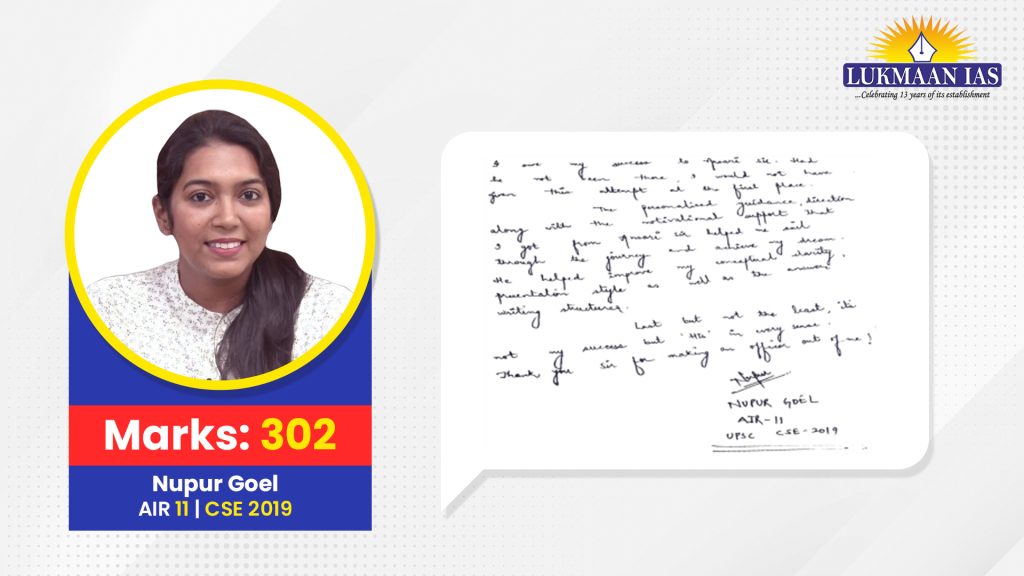 LUKMAAN IAS
...Celebrating 13 years of its establishment
I owe my success to Ansari sir. Had
he not been there, I would not have
given this attempt at the first place.
The personalised guidance, direction
along with the motivational support that
I got from Ansari sir helped me sail
through the journey and achieve my dream.
He helped improve my conceptual clarity,
presentation style as well as the answer
writing structures.
Last but not the least, it's
not my success but 'His' in every sense.
Thank you sir for making an officer out of me!
Nupur
NUPUR GOEL
AIR-11
UPSC CSE-2019
Marks: 302
Nupur Goel
AIR 11 | CSE 2019